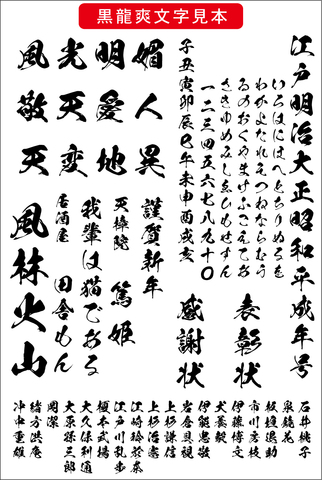 黒龍爽文字見本
江戸明治大正昭和平成年号
いろはにほへとちりぬるを
わかよたれそつねならむう
ゐのおくやまけふこえてあ
さきゆめみしゑひもせすん
一二三四五六七八九十〇
子丑寅卯辰巳午未申酉戌亥
表彰状
感謝状
媚人異
明愛地
光天変
風敬天
謹賀新年
天璋院 篤姫
我輩は猫である
居酒屋 田舎もん
風林火山
石井桃子
泉鏡花
板垣退助
市川房枝
伊藤博文
犬養毅
伊能忠敬
岩倉具視
上杉謙信
上杉治憲
江崎玲於奈
江戸川乱歩
榎本武揚
大久保利通
大原孫三郎
岡潔
緒方洪庵
沖中重雄